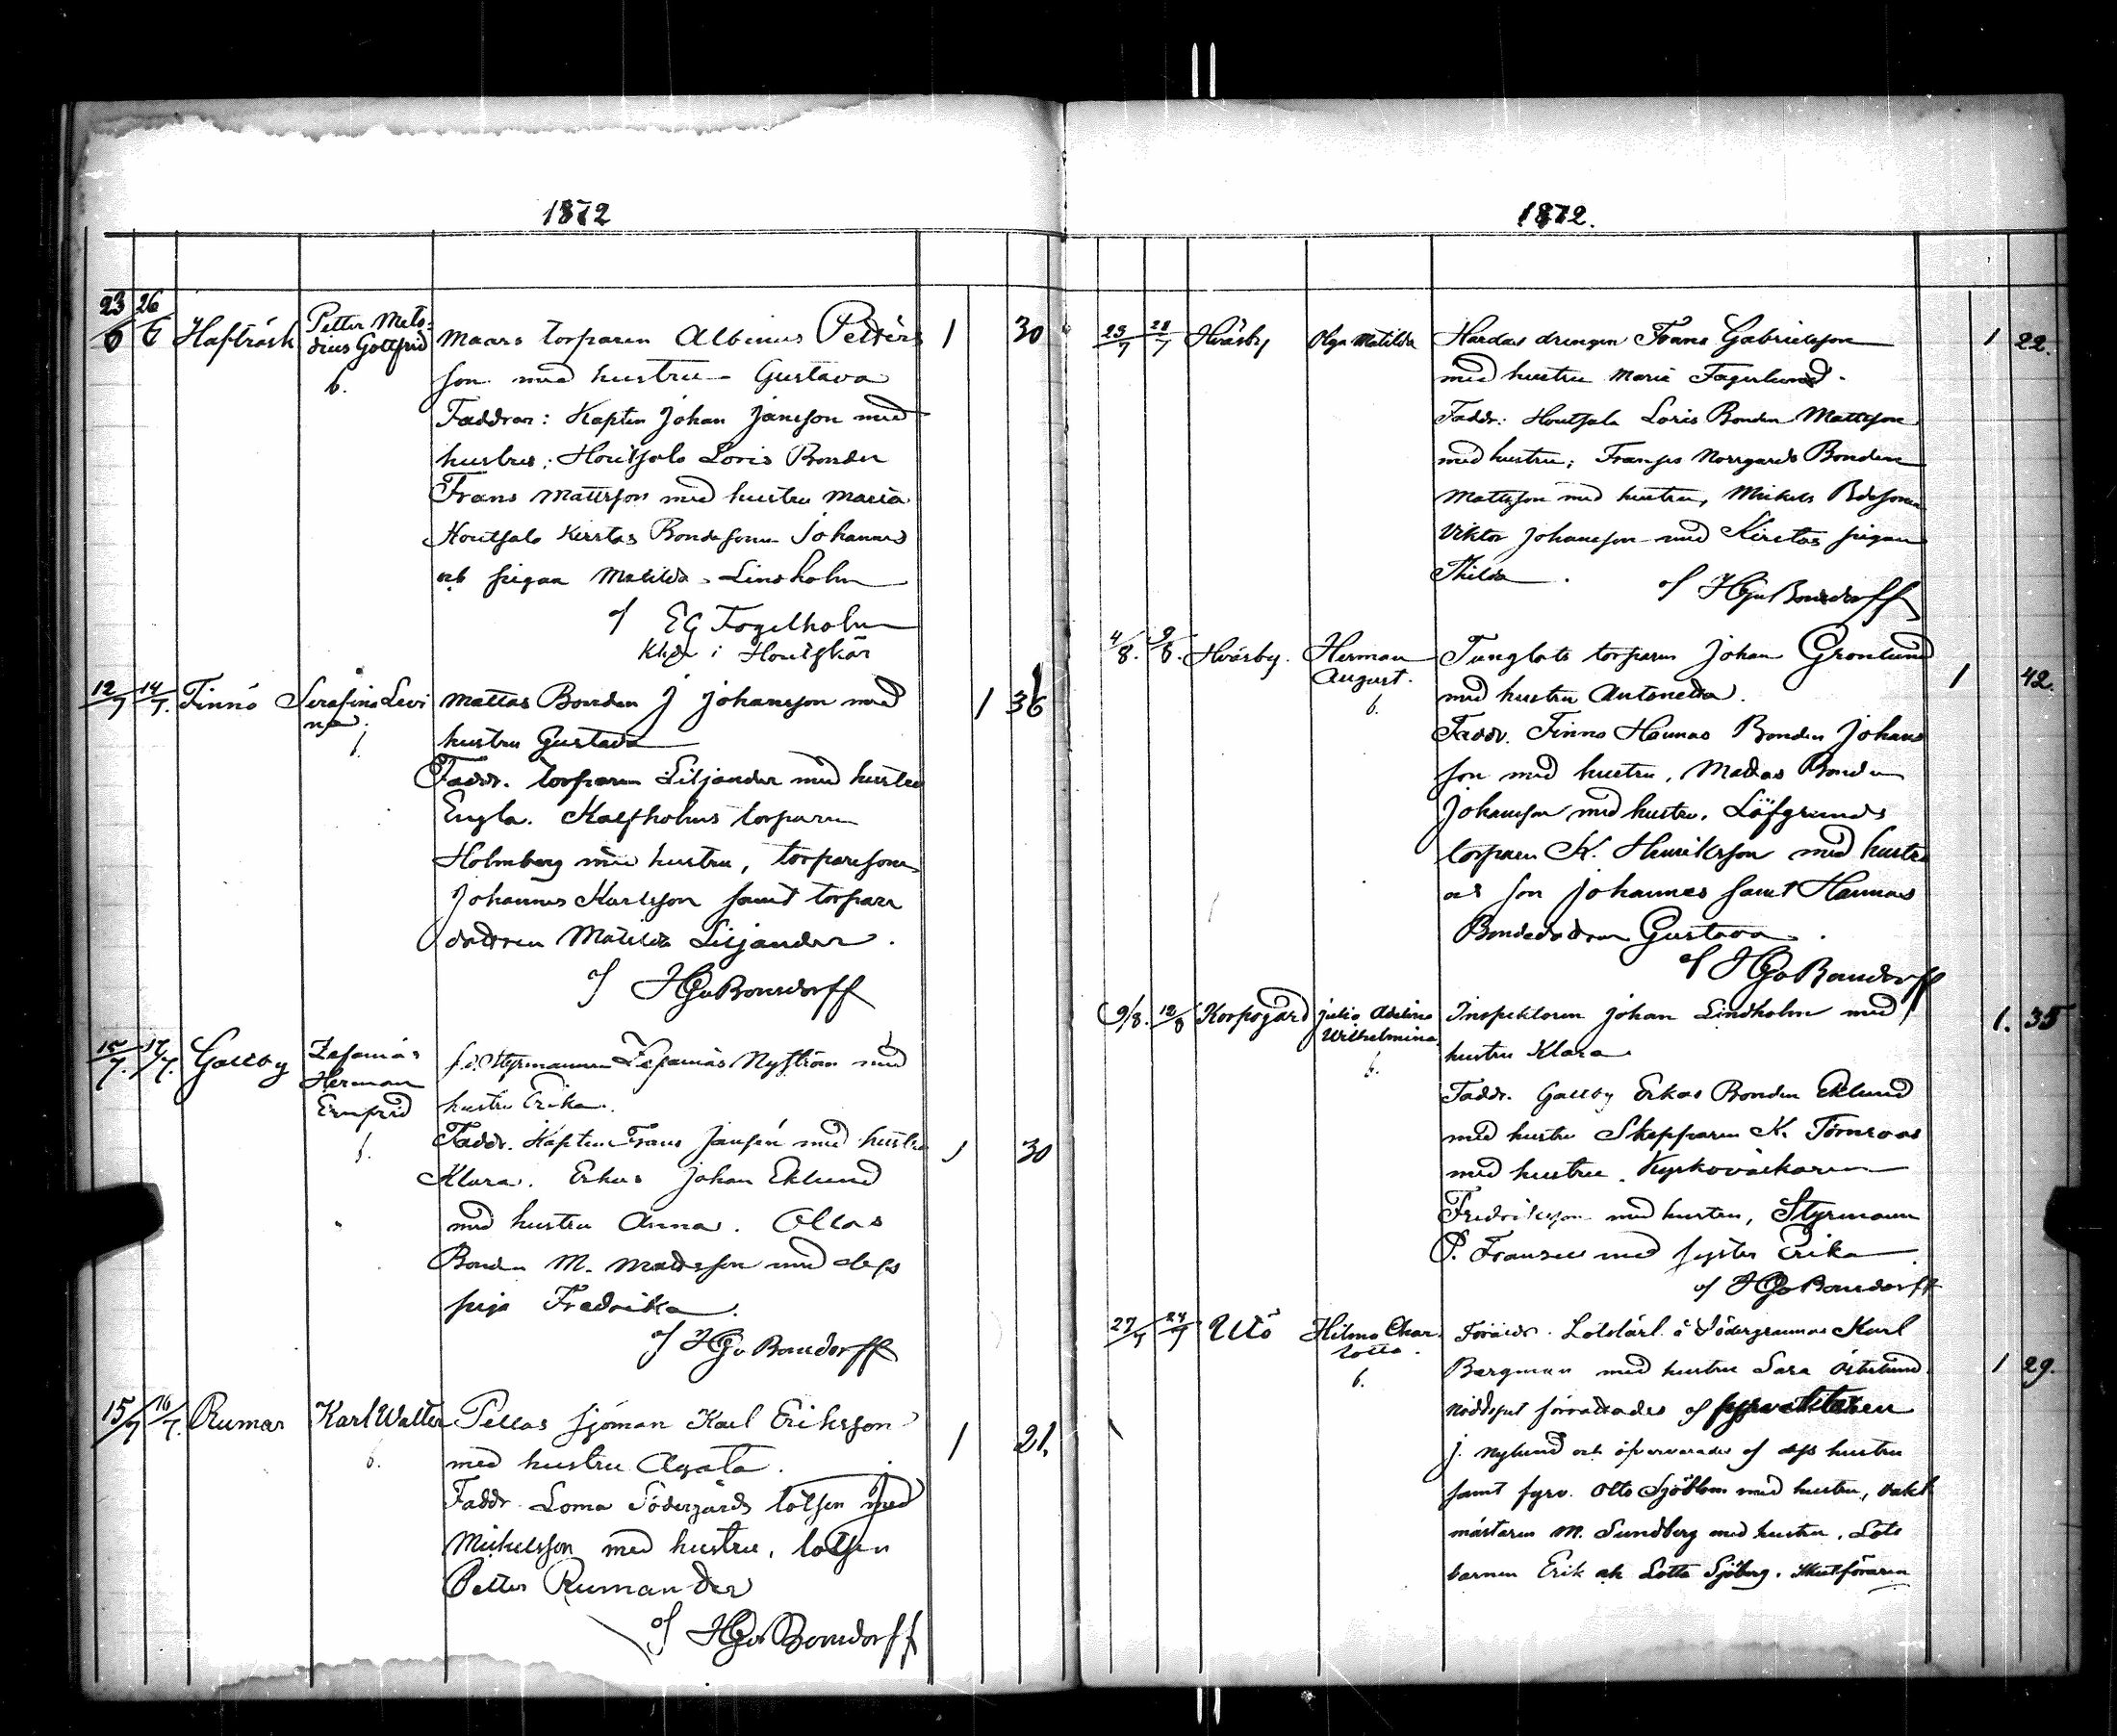 1872
23/6 26/6 Hafträsk Petter Meto-
dius Gottfrid
b.
Maars torparen Albinus Petters 1 30
son med hustru Gustava
Faddrar: Kapten Johan Jansson med
hustru; Houtsala Loris Bonden
Frans Mattsson med hustru Maria
Houtsala Kirstas Bondesonen Johannes
och pigan Matilda Lindholm
af EG Fogelholm
i Houtskär
12/7 14/7. Finnö Serafina Levi
na.
b.
Mattas Bonden J Johansson med 1 36
hustru Gustava
Faddr. torparen Liljander med hustru
Engla. Kalfholms torparen
Holmberg med hustru, torparesonen
Johannes Karlsson samt torpare
dottren Matilda Liljander.
af HGvBonsdorff
15/7. 17/7. Galtby Zefanias
Herman
Ernfrid
b.
Styrmannen Zefanias Nyström med
hustru Erika.
Faddr. Kapten Frans Jansén med hustru 1 30
Klara. Erkas Johan Eklund
med hustru Anna. Ollas
Bonden M. Mattsson med dess
piga Fredrika.
af HGvBonsdorff
15/7 16/7. Rumar Karl Walter
b.
Pellas sjöman Karl Eriksson 1 21.
med hustru Agata.
Faddr. Loma Södergårds lotsen med
Mickelsson med hustru, lotsen
Petter Rumander
af HGvBonsdorff
1872.
25/7 28/7 Hväsby Olga Matilda
Hardas drengen Frans Gabrielsson 1 22.
med hustru Maria Fagerlund.
Faddr: Houtsala Loris Bonden Mattsson
med hustru; Norrgårds Bonden
Mattsson med hustru, Mickels Bdesonen
Viktor Johansson med Kirstas pigan
Thilda.
af HGvBonsdorff
4/8. 9/8. Hväsby. Herman
August.
b.
torparen Johan Grönlund 1 42.
med hustru Antonetta.
Faddr. Finnö Hannas Bonden Johans
son med hustru, Mattas Bonden
Johansson med hustru, Löfgrunds
torparen K. Henriksson med hustru
och son Johannes samt Hannas
Bondedottren Gustava.
af HGvBonsdorff
9/8. 12/8 Korpogård Julia Adelina
Wilhelmina
b.
Inspektoren Johan Lindholm med 1. 35
hustru Klara
Faddr. Galtby Erkas Bonden Eklund
med hustru Skepparen K. Törnroos
med hustru. Kyrkoväktaren
Fredriksson med hustru, Styrmann
P. Fransén med syster Erika
af HGvBonsdorff
27/7 Utö Hilma Char
lotta.
b.
Föräldr. Lotslärl. å Södergrunnas Karl
Bergman med hustru Sara Österlund. 1 29.
Nöddopet förrättades af fyrvaktaren
J. Nylund och öfvervarades af dess hustru
samt fyrv. Otto Sjöblom med hustru, vakt
mästaren M. Sundberg med hustru, Lots
barnen Erik och Lotta Sjöberg. Skutföraren